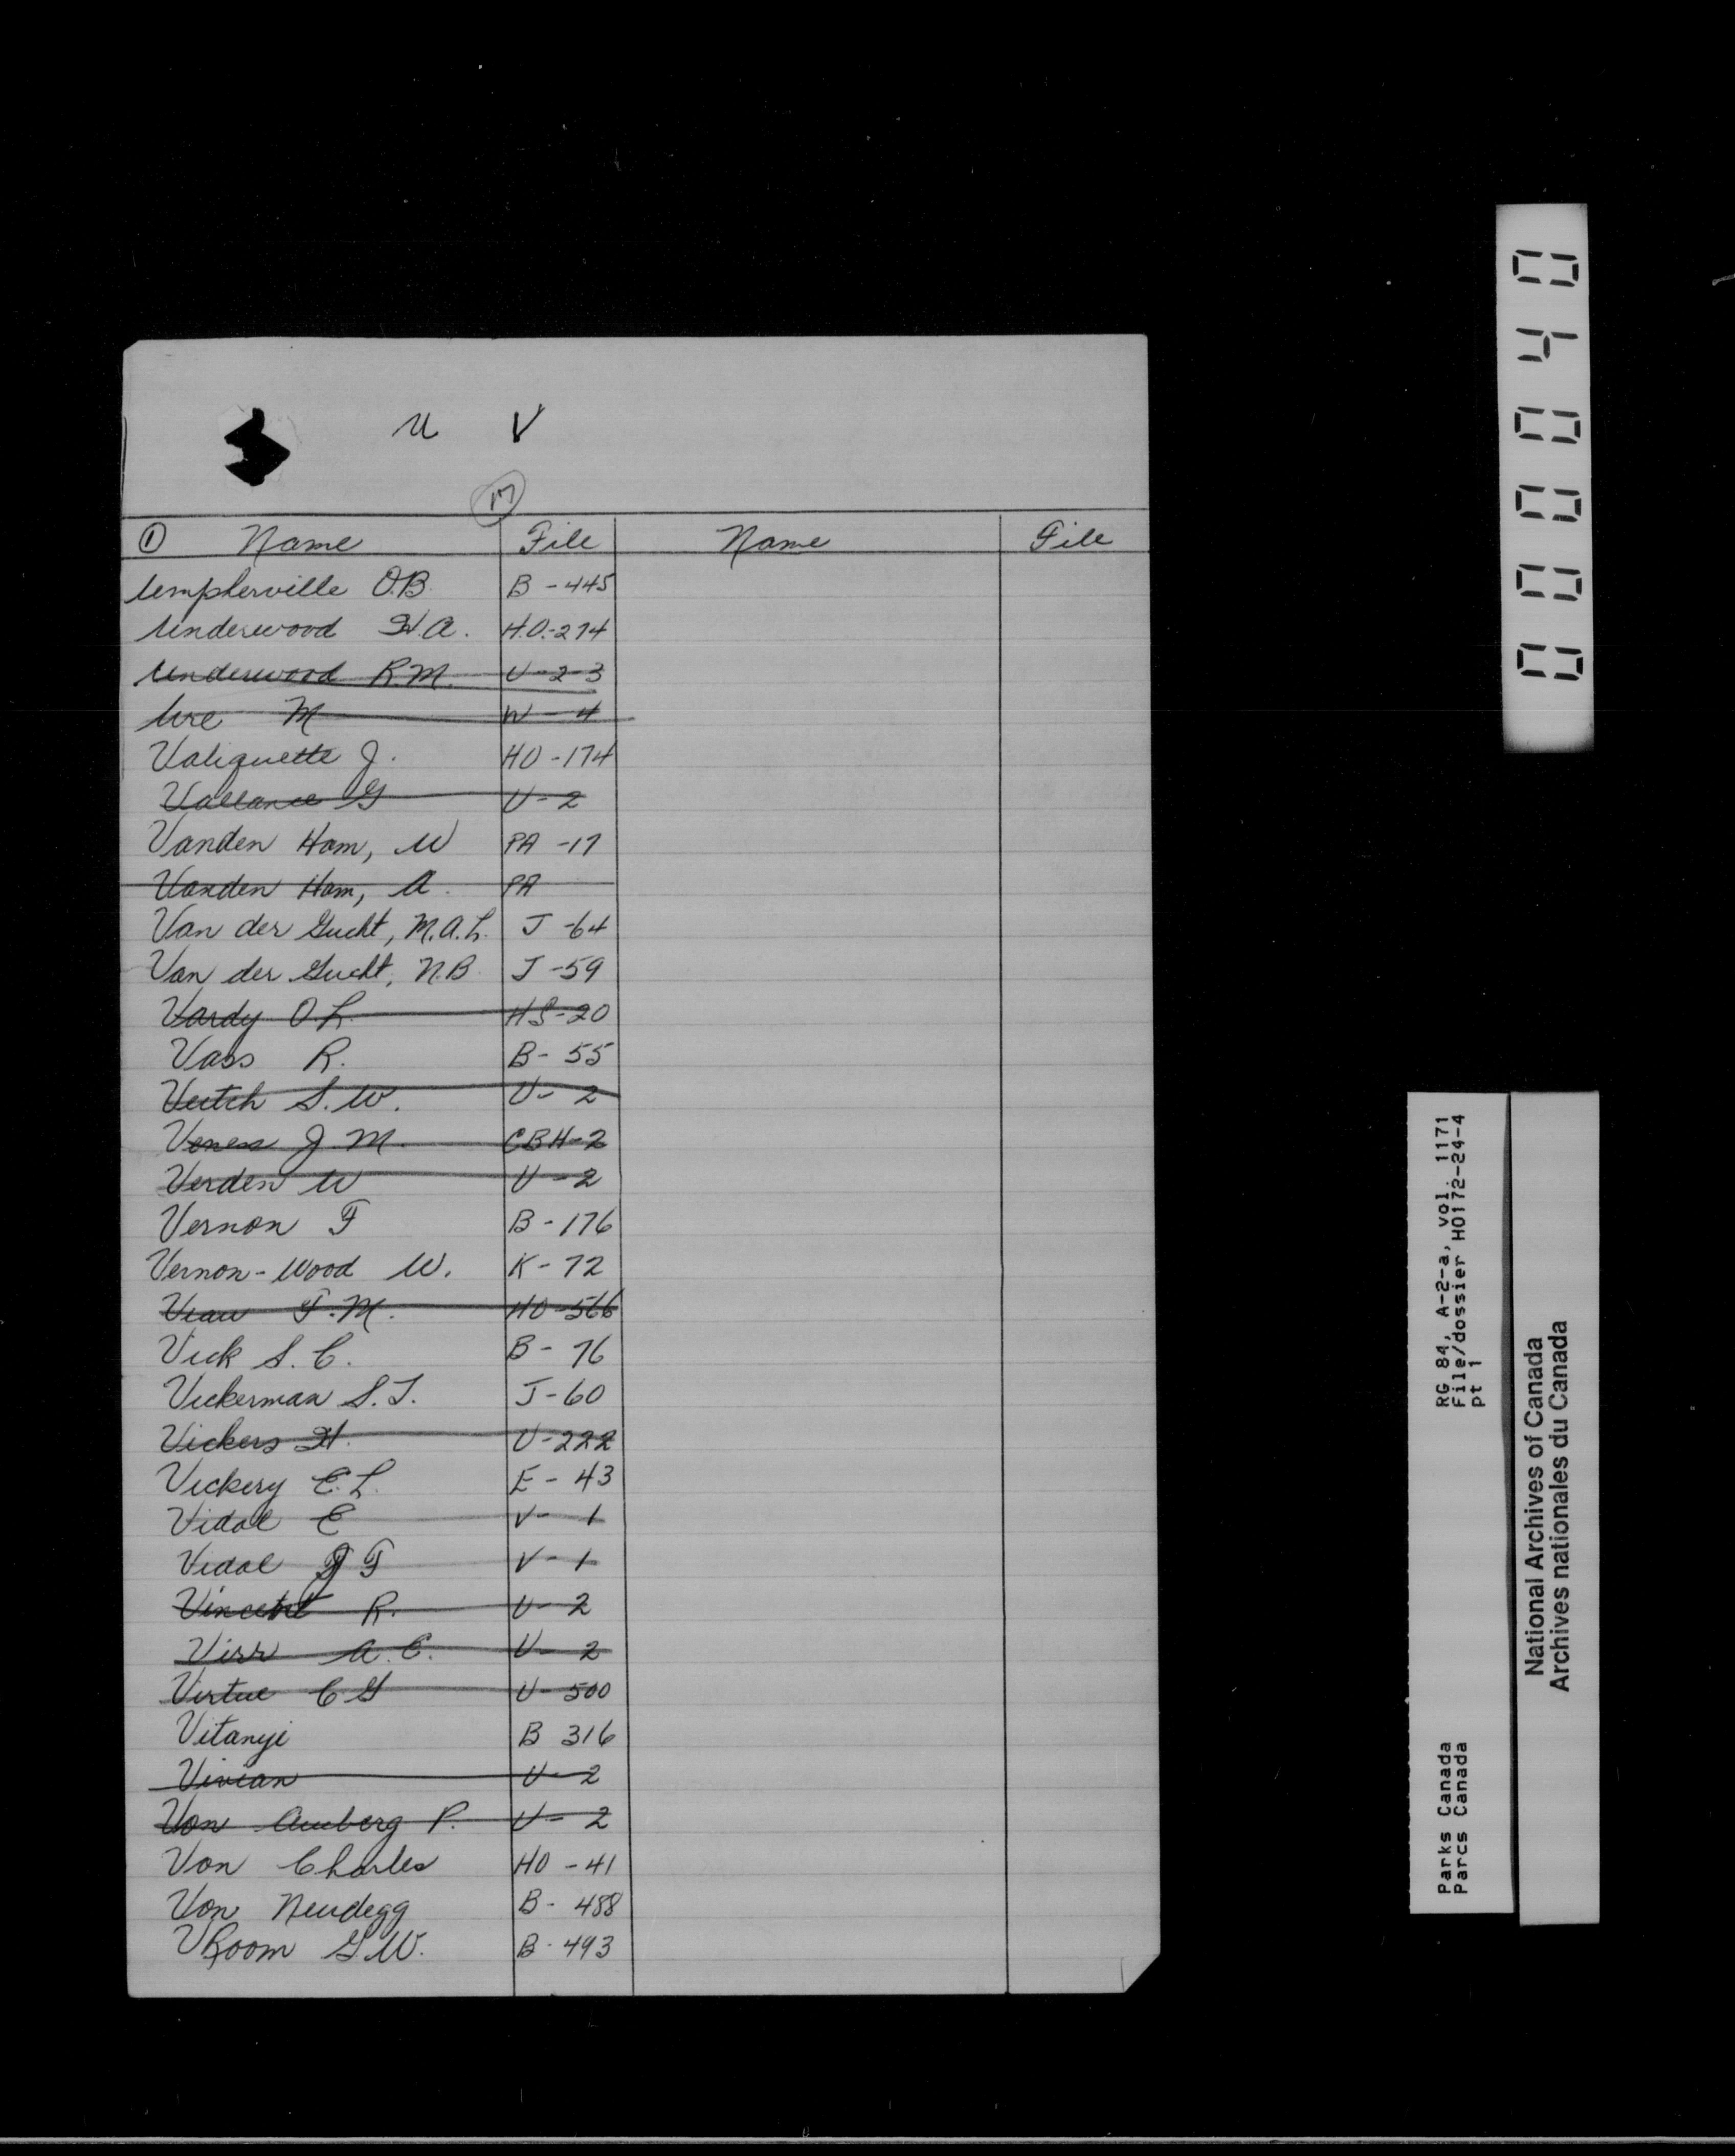 U V
17
① Name File Name File
Umpherville O.B. B - 445
Underwood H.A. H.O.-274
Underwood R.M. U-2-3
Ure M W - 4
Valiquette J. HO - 174
Vallance G U - 2
Vanden Ham, W PA - 17
Vanden Ham, A. PA
Van der Gucht, M.A.L. J - 64
Van der Gucht, N.B. J - 59
Vardy O L. HS - 20
Vass R. B - 55
Veitch S. W. U - 2
Veness J. M. CBH - 2
Verden W U - 2
Vernon F B - 176
Vernon - Wood W. K - 72
Viau F. M. HO - 566
Vick S. C. B - 76
Vickerman S. J. J - 60
Vickers H. U - 222
Vickery E. L. E - 43
Vidal E V - 1
Vidal F V - 1
Vincent R. U - 2
Virr A. E. U - 2
Virtue C G U - 500
Vitanyi B 316
Vivian U - 2
Von Amberg P. U - 2
Von Charles HO - 41
Von Neudegg B - 488
VRoom G. W. B - 493
000040
RG 84, A-2-a, vol. 1171
File/dossier H0172-24-4
pt 1
Parks Canada
Parcs Canada
National Archives of Canada
Archives nationales du Canada